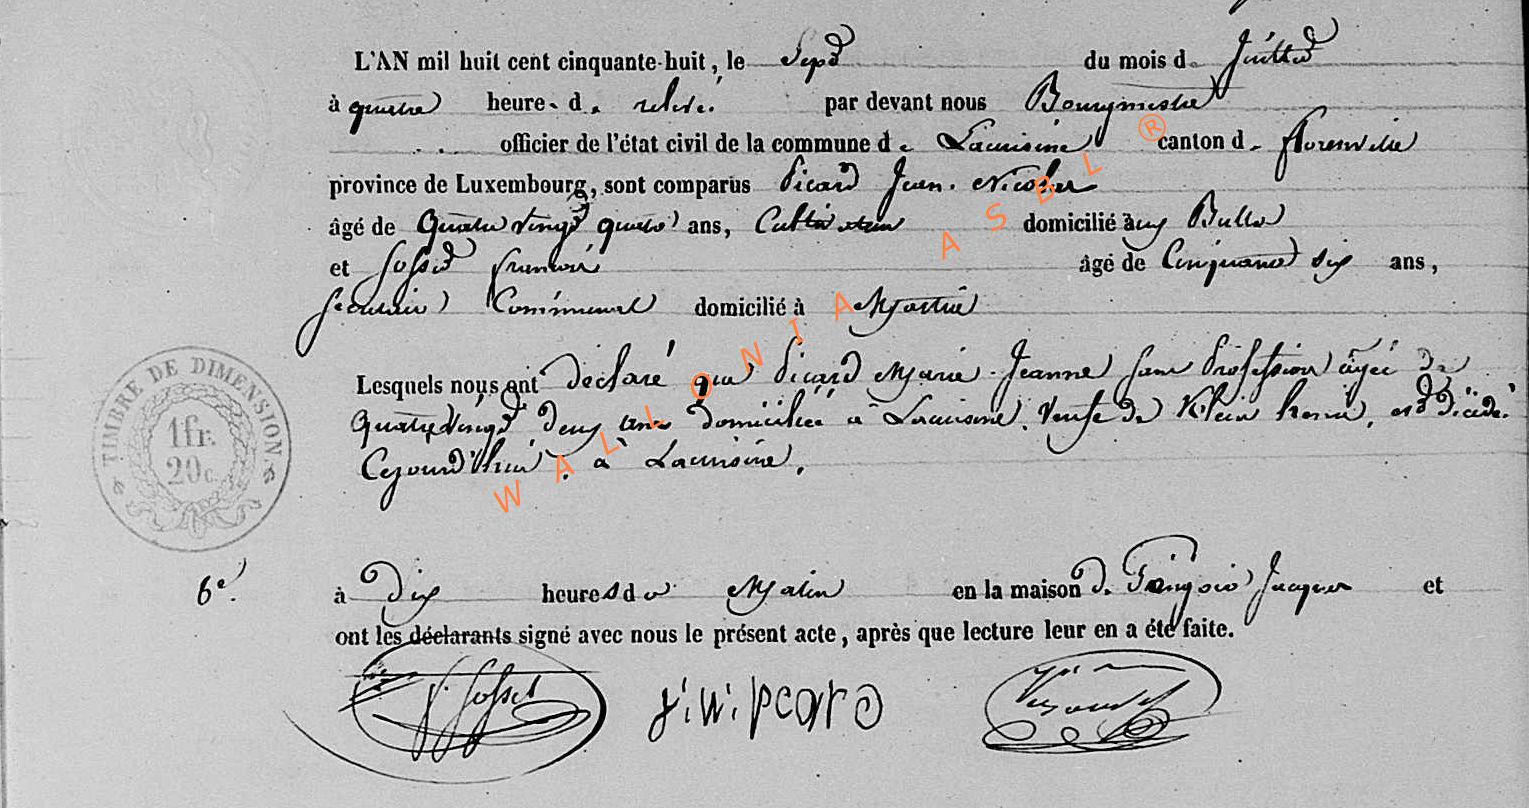 L'AN mil huit cent cinquante-huit, le Sept du mois d. Juillet
à quatre heure. d. relevé. par devant nous Bourgmestre
officier de l'état civil de la commune de Lacuisine canton d. florenville
province de Luxembourg, sont comparus Picard Jean. Nicolas
âgé de Quatre vingt quatre ans, Cultivateur domicilié aux Bulles
et Gosset françois âgé de Cinquante six ans,
Secretaire Communal domicilié à Martué
Lesquels nous ont déclaré que Picard Marie Jeanne sans Profession agée de
Quatre Vingt Deux ans domiciliée à Lacuisine. Veuve de Klein henri, est décédé.
Cejourd'hui, à Lacuisine.
6e.
à Dix heures du Matin en la maison de Jacques et
ont les déclarants signé avec nous le présent acte, après que lecture leur en a été faite.
f. Gosset j. n. pcard
TIMBRE DE DIMENSION.
1 fr.
20 c.
WALLONIA ASBL ®